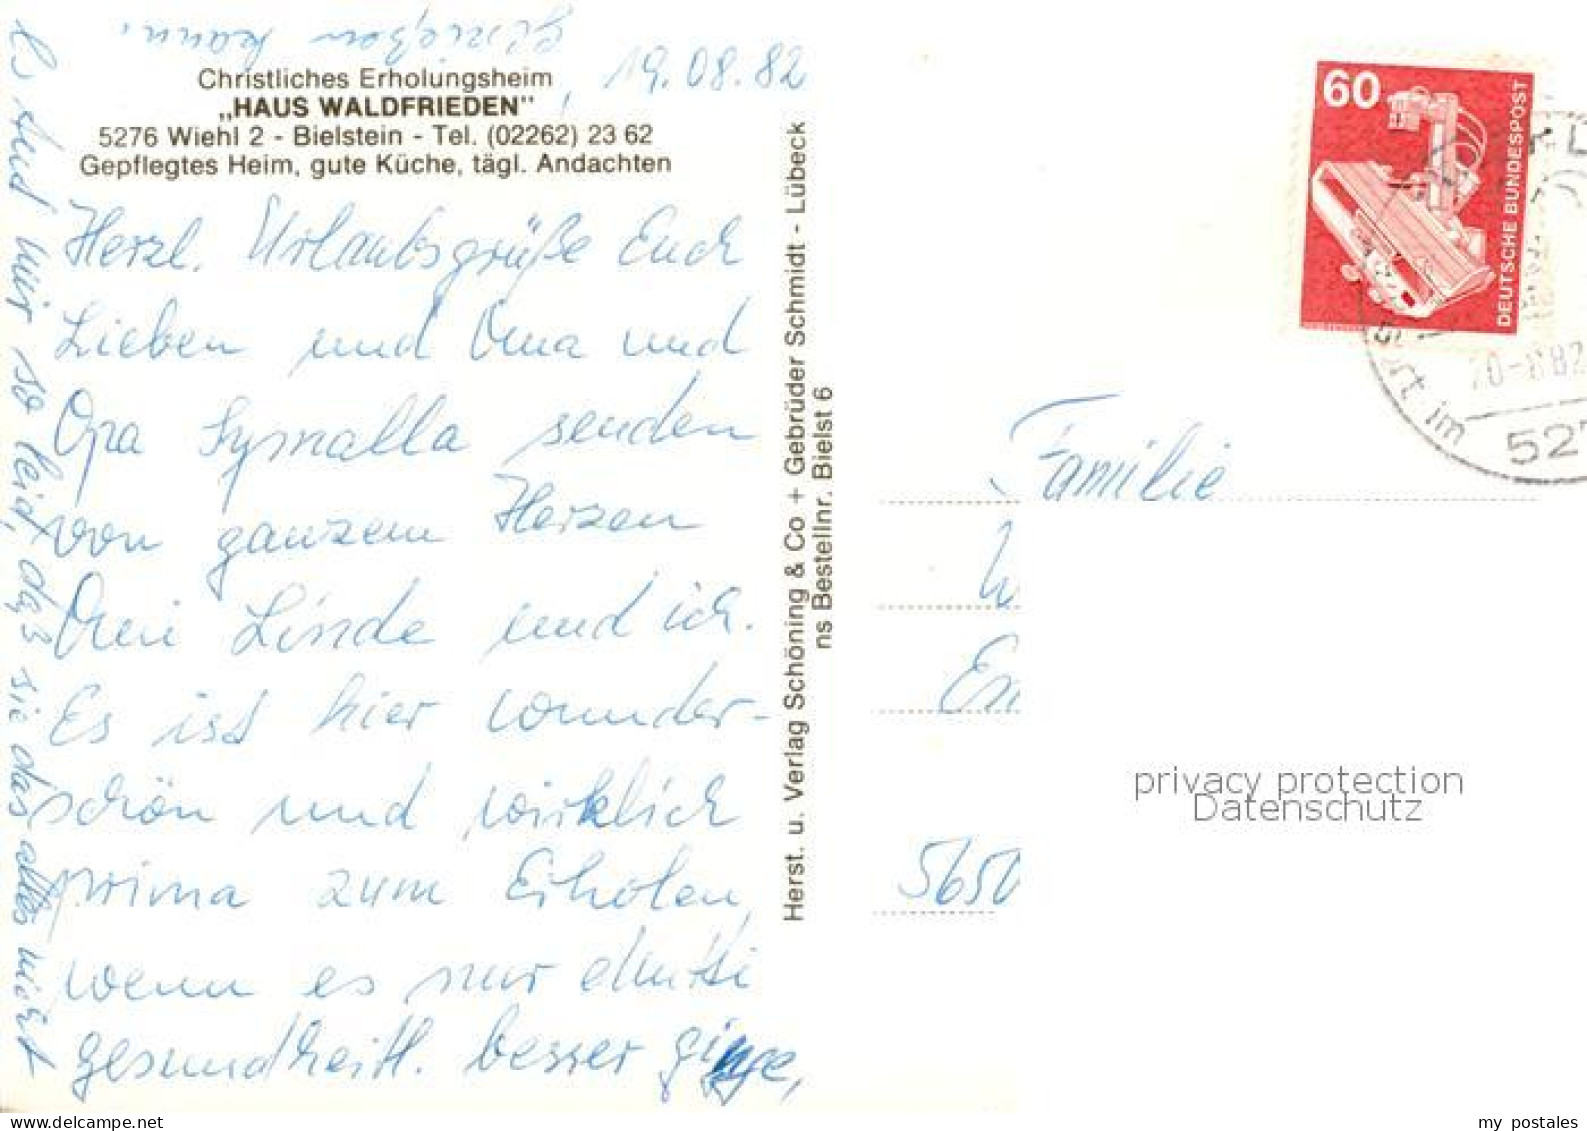 19.08.82
Christliches Erholungsheim
„HAUS WALDFRIEDEN"
5276 Wiehl 2 - Bielstein - Tel. (02262) 23 62
Gepflegtes Heim, gute Küche, tägl. Andachten
Herzl. Urlaubsgrüße Euch
Lieben und Oma und
Opa Symalla senden
von ganzem Herzen
Linde und ich.
Es ist hier wunder-
schön und wirklich
prima zum Erholen,
wenn es nur
gesundheitl. besser ginge,
Es tud mir so leid, daß sie das alles nicht
genießen kann.
Herst. u. Verlag Schöning & Co + Gebrüder Schmidt - Lübeck
ns Bestellnr. Bielst 6
60
DEUTSCHE BUNDESPOST
ort im
20-882
527
Familie
W
En
5650
privacy protection
Datenschutz
my postales